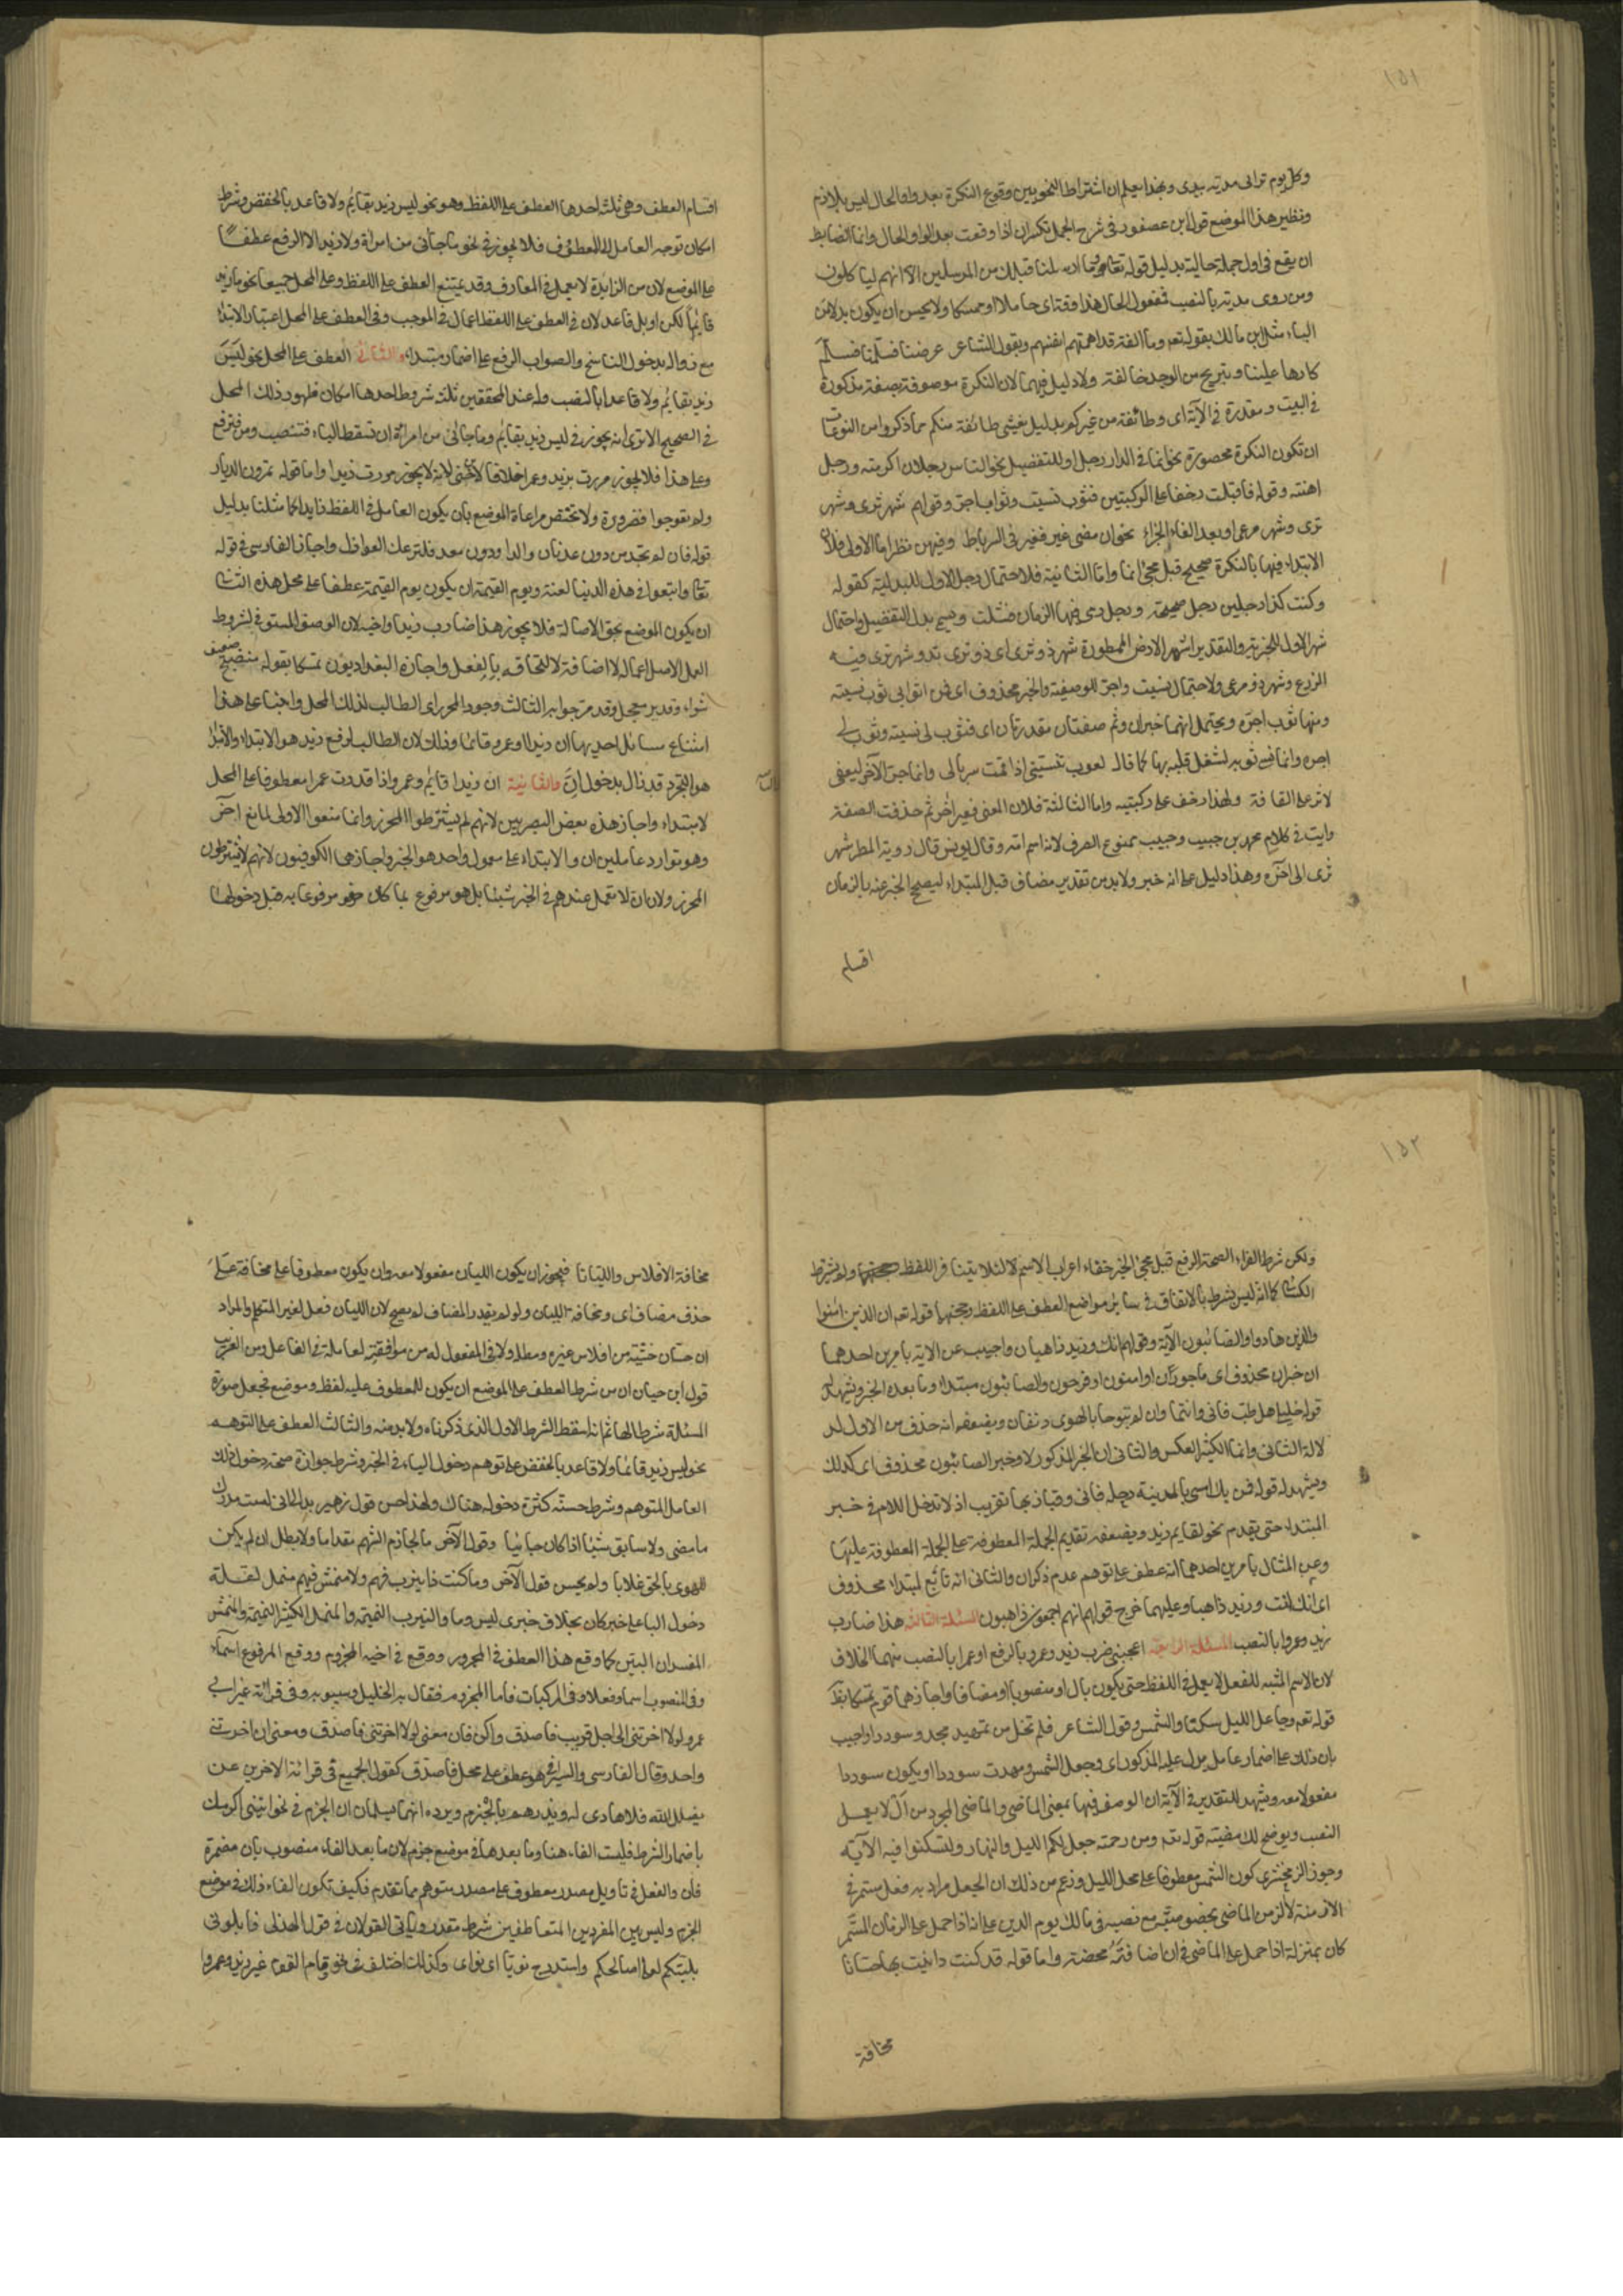 ١٥١
وكل يوم تراني مدية بيدي وبهذا يعلم ان اشتراط النحويين وقوع النكرة بعد واو الحال ليس بلازم
ونظير هذا الموضع قول ابن عصفور في شرح الجمل تكسر ان اذا وقعت بعد الواو الحال وانما الضابط
ان يقع في اول جملة حالية بدليل قوله تعالى وما ارسلنا قبلك من المرسلين الا انهم لياكلون
ومن روى مدية بالنصب فمفعول الحال هذا وقتا اى حاملا او ممسكا ولا يحسن ان يكون بدلا من
الياء مثل ابن مالك بقوله تعه وطائفة قد اهمتهم انفسهم وبقول الشاعر عرضنا فسلمنا فسلم
كارها علينا وتبريح من الوجد خانقه ولا دليل فيهما لان النكرة موصوفة بصفة مذكورة
في البيت ومقدرة في الآية اى وطائفة من غيركم بدليل يغشى طائفة منكم مما ذكروا من المسوغات
ان تكون النكرة محصورة نحو انما في الدار رجل او للتفضيل نحو الناس رجلان اكرمته ورجل
اهنته وقوله فاقبلت زحفا على الركبتين فثوب نسيت وثوب اجر وقولهم شهر ثرى وشهر
ترى وشهر مرعى او بعد الفاء الجزاء نحو ان مضى عير فعير في الرباط وفيهن نظر اما الاولى فلان
الابتداء فيها بالنكرة صحيح قبل مجئ انما واما الثانية فلاحتمال رجل الاول للبدلية كقوله
وكنت كذا رجلين رجل صحيحة ورجل رمى فيها الزمان فشلت ويسمى بدل التفضيل واحتمال
شهر الاول للخبرية والتقدير اشهر الارض الممطورة شهر ذو ثرى اى ذو ثرى ند وشهر ترى فيه
الزرع وشهر ذو مرعى ولاحتمال نسيت واجر للوصفية والخبر محذوف اى فمن اثوابي ثوب نسيته
ومنها ثوب اجره ويحتمل انهما خبران وثم صفتان مقدرتان اى فثوب لي نسيته وثوب لي
اجره وانما نسي ثوبه لشغل قلبه بها كما قال لعوب تنسيني اذا قمت سربالي وانما جر الآخر ليعفى
لاثر على القافة ولهذا زحف على ركبتيه واما الثالثة فلان المعنى فعير آخر ثم حذفت الصفة
ورايت في كلام محمد بن حبيب وحبيب ممنوع الصرف لانه اسم امه وقال يونس قال رؤبة المطر شهر
ثرى الى آخره وهذا دليل على انه خبر ولا بد من تقدير مضاف قبل المبتداء ليصح الخبر عنه بالزمان
اقسام
اقسام العطف وهي ثلثة احدها العطف على اللفظ وهو نحو ليس زيد بقايم ولا قاعد بالخفض وشرط
امكان توجه العامل الى المعطوف فلا يجوز في نحو ما جائنى من امراة ولا زيد الا الرفع عطفا
على الموضع لان من الزايدة لا يعمل في المعارف وقد يمتنع العطف على اللفظ وعلى المحل جميعا نحو ما زيد
قائما لكن او بل قاعد لان في العطف على اللفظ اعمال في الموجب وفي العطف على المحل اعتبار الابتداء
مع زواله بدخول الناسخ والصواب الرفع على اضمار مبتداء والثاني العطف على المحل نحو ليس
زيد بقائم ولا قاعدا بالنصب وله عند المحققين ثلثة شروط احدها امكان ظهور ذلك المحل
في الصحيح الا ترى انه يجوز في ليس زيد بقايم وما جائنى من امراة ان تسقط الباء فتنصب ومن فترفع
وعلى هذا فلا يجوز مررت بزيد وعمرا خلافا لابن جني لانه لا يجوز مررت زيدا واما قوله تمرون الديار
ولم تعوجوا فضرورة ولا تختص مراعاة الموضع بان يكون العامل في اللفظ زايدا كما مثلنا بدليل
قوله فان لم تجد من دون عدنان والدا ودون معد فلتزعك العواذل واجاز الفارسى في قوله
تعا واتبعوا في هذه الدنيا لعنة ويوم القيمة ان يكون يوم القيمة عطفا على محل هذه الثاني
ان يكون الموضع بحق الاصالة فلا يجوز هذا ضارب زيدا واخيه لان الوصف المستوفى لشروط
العمل الاصل اعماله لا اضافة لالتحاقه بالفعل واجازه البغداديون تمسكا بقوله منضج صفيف
شواء وقدير معجل وقد مر جوابه الثالث وجود المحرز اى الطالب لذلك المحل وابتنى على هذا
امتناع مسائل احديها ان زيدا وعمرو قائمان وذلك لان الطالب لرفع زيد هو الابتداء والابتداء
هو التجرد قد زال بدخول ان والثانية ان زيدا قايم وعمرو اذا قدرت عمرا معطوفا على المحل
لا مبتداء واجاز هذه بعض البصريين لانهم لم يشترطوا المحرز وانما منعوا الاولى لمانع آخر
وهو توارد عاملين ان والابتداء على معمول واحد هو الخبر واجازهما الكوفيون لانهم لا يشترطون
المحرز ولان ان لا تعمل عندهم في الخبر شيئا بل هو مرفوع بما كان هو مرفوعا به قبل دخولها
١٥٢
ولكن شرط الفراء لصحة الرفع قبل مجئ الخبر خفاء اعراب الاسم لئلا يتنافر اللفظ ولم يشترط
الكسائي كما انه ليس بشرط بالاتفاق في سائر مواضع العطف على اللفظ وحجتهما قوله تعه ان الذين امنوا
والذين هادوا والصابئون الآية وقولهم انك وزيد ذاهبان واجيب عن الاية بامرين احدهما
ان خبر ان محذوف اى ماجورون او امنون او فرحون والصابئون مبتداء وما بعده الخبر ويشهد له
قوله خليلي هل طب فاني وانتما وان لم تبوحا بالهوى دنفان ويضعفه انه حذف من الاول لد
لالة الثاني وانما الكثير العكس والثاني ان الخبر المذكور لان وخبر الصابئون محذوف اى كذلك
ويشهد له قوله فمن يك امسى بالمدينة رحله فاني وقيار بها لغريب اذ لا تدخل اللام في خبر
المبتداء حتى يقدم نحو لقايم زيد ويضعفه تقديم الجملة المعطوفة على الجملة المعطوفة عليها
وعن المثال بامرين احدهما انه عطف على توهم عدم ذكر ان والثاني انه تابع لمبتداء محذوف
اى انك انت وزيد ذاهبان وعليهما خرج قولهم انهم اجمعون ذاهبون المسئلة الثالثة هذا ضارب
زيد وعمروا بالنصب المسئلة الرابعة اعجبنى ضرب زيد وعمرو بالرفع او عمرا بالنصب منعهما الحذاق
لان الاسم المشبه للفعل لا يعمل في اللفظ حتى يكون بال او منصوبا او مضافا واجازهما قوم تمسكا بظاهر
قوله تعه وجاعل الليل سكنا والشمس وقول الشاعر فلم تخل من تمهيد مجد وسوددا واجيب
بان ذلك على اضمار عامل يدل عليه المذكور اى وجعل الشمس ومهدت سوددا او يكون سوددا
مفعولا معه ويشهد للتقدير في الآية ان الوصف فيها بمعنى الماضي والماضي المجرد من ال لا يعمل
النصب ويوضح لك مضيته قوله تعه ومن رحمته جعل لكم الليل والنهار ولتسكنوا فيه الآية
وجوز الزمخشري كون الشمس معطوفا على محل الليل وزعم مع ذلك ان الجعل مراد به فعل مستمر في
الازمنة لا الزمن الماضي بخصوصيته مع نصه في مالك يوم الدين على انه اذا حمل على الزمان المستمر
كان بمنزلة اذا حمل على الماضي في ان اضافته محضة واما قوله قد كنت داينت بها حسانا
مخافة
مخافة الافلاس والليانا فيجوز ان يكون الليان مفعولا معه وان يكون معطوفا على مخافة على
حذف مضاف اى ومخافة الليان ولو لم يقدر المضاف لم يصح لان الليان فعل لغير المتكلم والمراد
ان حسان خشية من افلاس غيره ومطله ولا بد في المفعول له من موافقته لعامله في الفاعل ومن الغريب
قول ابن حيان ان من شرط العطف على الموضع ان يكون للمعطوف عليه لفظ وموضع فجعل صورة
المسئلة شرطا لها ثم انه اسقط الشرط الاول الذى ذكرناه ولا بد منه والثالث العطف على التوهم
نحو ليس زيد قائما ولا قاعد بالخفض على توهم دخول الباء في الخبر وشرط جوازه صحة دخول ذلك
العامل المتوهم وشرط حسنه كثرة دخوله هناك ولهذا حسن قول زهير بدا لي اني لست مدرك
ما مضى ولا سابق شيئا اذا كان جائيا وقول الآخر ما الحازم الشهم مقداما ولا بطل ان لم يكن
للهوى بالحق غلابا ولم يحسن قول الآخر وما كنت ذا نيرب فيهم ولا منمش فيهم منمل لقلة
دخول الباء على خبر كان بخلاف خبري ليس وما والنيرب النميمة والمنمل الكثير النميمة والمنمش
المفسد ذات البين كما وقع هذا العطف في المجرور ووقع في اخيه المجزوم ووقع المرفوع اسما
وفي المنصوب اسما وفعلا وفي المركبات فاما المجزوم فقال به الخليل وسيبويه في قرائة غير ابي
عمرو لولا اخرتني الى اجل قريب فاصدق واكن فان معنى لولا اخرتني فاصدق ومعنى ان اخرتني
واحد وقال الفارسي والسيرافي هو عطف على محل فاصدق كقول الجميع في قرائة الاخرين من
يضلل الله فلا هادي له ويذرهم بالجزم ويرده انهما يسلمان ان الجزم في نحو ائتني اكرمك
باضمار الشرط فليست الفاء هنا وما بعدها في موضع جزم لان ما بعد الفاء منصوب بان مضمرة
فان والفعل في تاويل مصدر معطوف على مصدر متوهم مما تقدم فكيف تكون الفاء ذلك في موضع
الجزم وليس بين المفردين المتعاطفين شرط مقدر ويأتي القولان في قول الهذلي فابلوني
بليتكم لعلي اصالحكم واستدرج نويا اى نواى وكذلك اختلف في نحو قام القوم غير زيد وعمروا